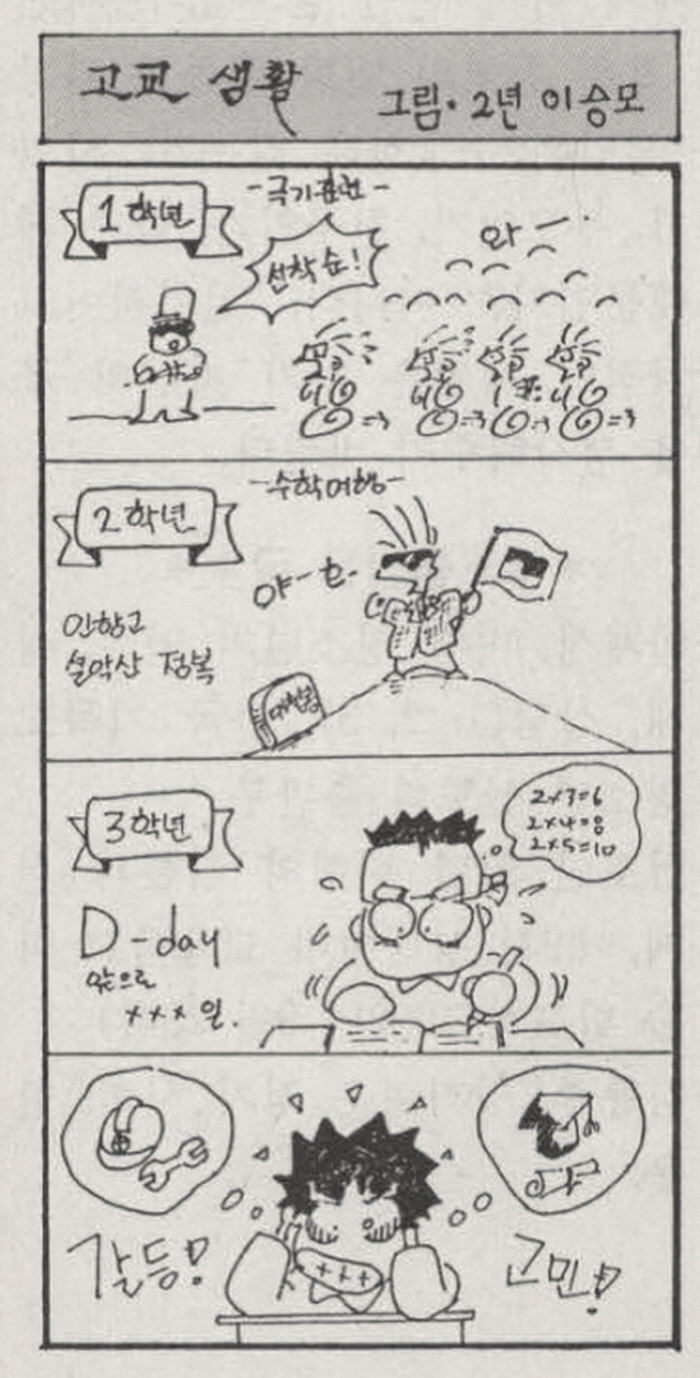 고교 생활
그림· 2년 이승모
1학년
-극기훈련-
선착순!
와—
2학년
-수학여행-
야-호-
안양고
설악산 정복
대청봉
3학년
2×3=6
2×4=8
2×5=10
D-day
앞으로
×××일.
갈등!
고민!